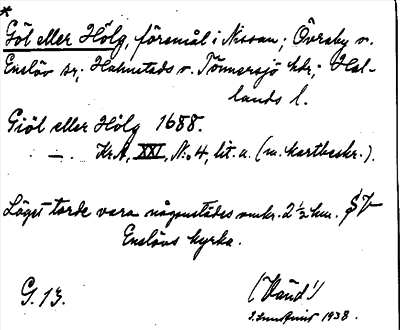 *
Göl eller Hölg, föremål i Nissan; Övraby o.
Enslöv sr; Halmstads o. Tönnersjö hdr; Hal-
lands l.
Giöl eller Hölg 1688.
— . Kr.A, XXI, N:o 4, lit. a. (m. kartbeskr.).
Läget torde vara någonstädes omkr. 2 ½ km.
Enslövs kyrka.
G. 13.
(Vänd!)
1938.